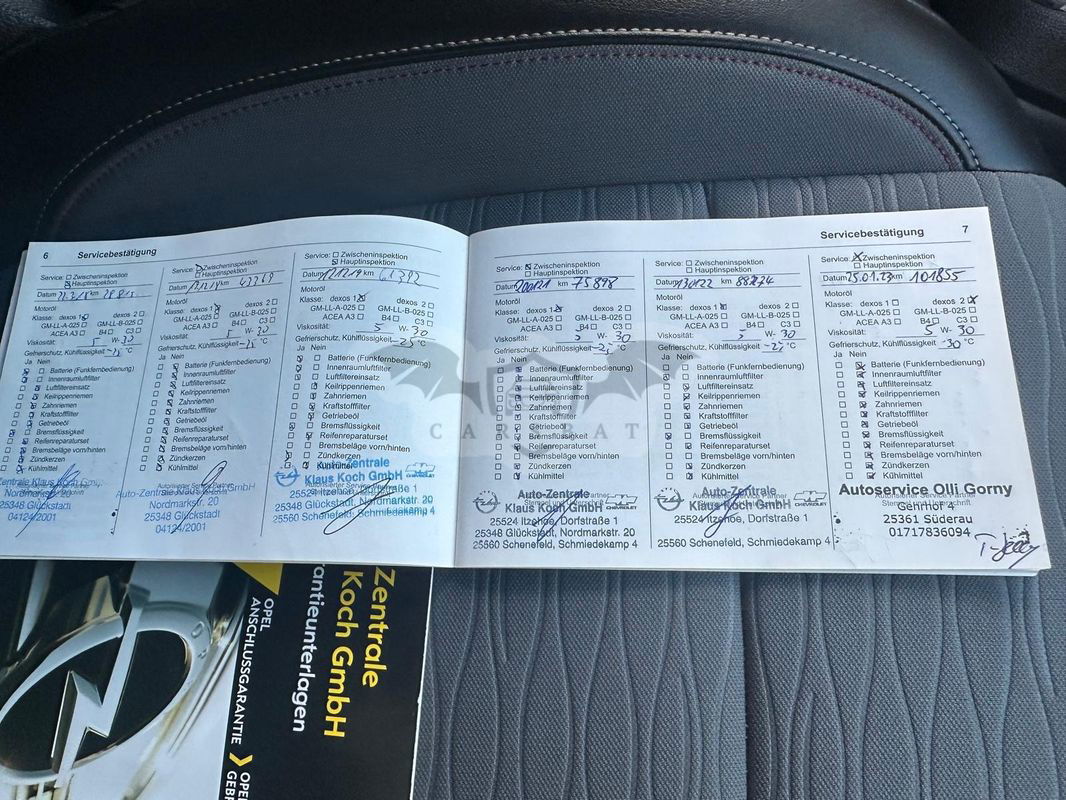 6 Servicebestätigung
Service: Zwischeninspektion
Hauptinspektion
Datum km
Motoröl
Klasse: dexos 1 dexos 2
GM-LL-A-025 GM-LL-B-025
ACEA A3 B4 C3
Viskosität: 5 W- 30
Gefrierschutz, Kühlflüssigkeit -25 °C
Ja Nein
Batterie (Funkfernbedienung)
Innenraumluftfilter
Luftfiltereinsatz
Keilrippenriemen
Zahnriemen
Kraftstofffilter
Getriebeöl
Bremsflüssigkeit
Reifenreparaturset
Bremsbeläge vorn/hinten
Zündkerzen
Kühlmittel
Nordmarkstr. 20
25348 Glückstadt
04124/2001
Service: Zwischeninspektion
Hauptinspektion
Datum km
Motoröl
Klasse: dexos 1 dexos 2
GM-LL-A-025 GM-LL-B-025
ACEA A3 B4 C3
Viskosität: 5 W- 30
Gefrierschutz, Kühlflüssigkeit -25 °C
Ja Nein
Batterie (Funkfernbedienung)
Innenraumluftfilter
Luftfiltereinsatz
Keilrippenriemen
Zahnriemen
Kraftstofffilter
Getriebeöl
Bremsflüssigkeit
Reifenreparaturset
Bremsbeläge vorn/hinten
Zündkerzen
Kühlmittel
Auto-Zentrale Klaus Koch GmbH
Nordmarkstr. 20
25348 Glückstadt
04124/2001
Service: Zwischeninspektion
Hauptinspektion
Datum km
Motoröl
Klasse: dexos 1 dexos 2
GM-LL-A-025 GM-LL-B-025
ACEA A3 B4 C3
Viskosität: 5 W- 30
Gefrierschutz, Kühlflüssigkeit -25 °C
Ja Nein
Batterie (Funkfernbedienung)
Innenraumluftfilter
Luftfiltereinsatz
Keilrippenriemen
Zahnriemen
Kraftstofffilter
Getriebeöl
Bremsflüssigkeit
Reifenreparaturset
Bremsbeläge vorn/hinten
Zündkerzen
Kühlmittel
Auto-Zentrale
Klaus Koch GmbH
25524 Itzehoe, Dorfstraße 1
25348 Glückstadt, Nordmarkstr. 20
25560 Schenefeld, Schmiedekamp 4
Servicebestätigung 7
Service: Zwischeninspektion
Hauptinspektion
Datum km 75898
Motoröl
Klasse: dexos 1 dexos 2
GM-LL-A-025 GM-LL-B-025
ACEA A3 B4 C3
Viskosität: 5 W- 30
Gefrierschutz, Kühlflüssigkeit -25 °C
Ja Nein
Batterie (Funkfernbedienung)
Innenraumluftfilter
Luftfiltereinsatz
Keilrippenriemen
Zahnriemen
Kraftstofffilter
Getriebeöl
Bremsflüssigkeit
Reifenreparaturset
Bremsbeläge vorn/hinten
Zündkerzen
Kühlmittel
Auto-Zentrale
Klaus Koch GmbH CHEVROLET
25524 Itzehoe, Dorfstraße 1
25348 Glückstadt, Nordmarkstr. 20
25560 Schenefeld, Schmiedekamp 4
Service: Zwischeninspektion
Hauptinspektion
Datum km
Motoröl
Klasse: dexos 1 dexos 2
GM-LL-A-025 GM-LL-B-025
ACEA A3 B4 C3
Viskosität: 5 W- 30
Gefrierschutz, Kühlflüssigkeit -25 °C
Ja Nein
Batterie (Funkfernbedienung)
Innenraumluftfilter
Luftfiltereinsatz
Keilrippenriemen
Zahnriemen
Kraftstofffilter
Getriebeöl
Bremsflüssigkeit
Reifenreparaturset
Bremsbeläge vorn/hinten
Zündkerzen
Kühlmittel
Auto-Zentrale
Klaus Koch GmbH CHEVROLET
25524 Itzehoe, Dorfstraße 1
25560 Schenefeld, Schmiedekamp 4
Service: Zwischeninspektion
Hauptinspektion
Datum 25.01.23 km 101855
Motoröl
Klasse: dexos 1 dexos 2
GM-LL-A-025 GM-LL-B-025
ACEA A3 B4 C3
Viskosität: 5 W- 30
Gefrierschutz, Kühlflüssigkeit -30 °C
Ja Nein
Batterie (Funkfernbedienung)
Innenraumluftfilter
Luftfiltereinsatz
Keilrippenriemen
Zahnriemen
Kraftstofffilter
Getriebeöl
Bremsflüssigkeit
Reifenreparaturset
Bremsbeläge vorn/hinten
Zündkerzen
Kühlmittel
Autoservice Olli Gorny
25361 Süderau
01717836094
Zentrale
Koch GmbH
rantieunterlagen
OPEL
ANSCHLUSSGARANTIE